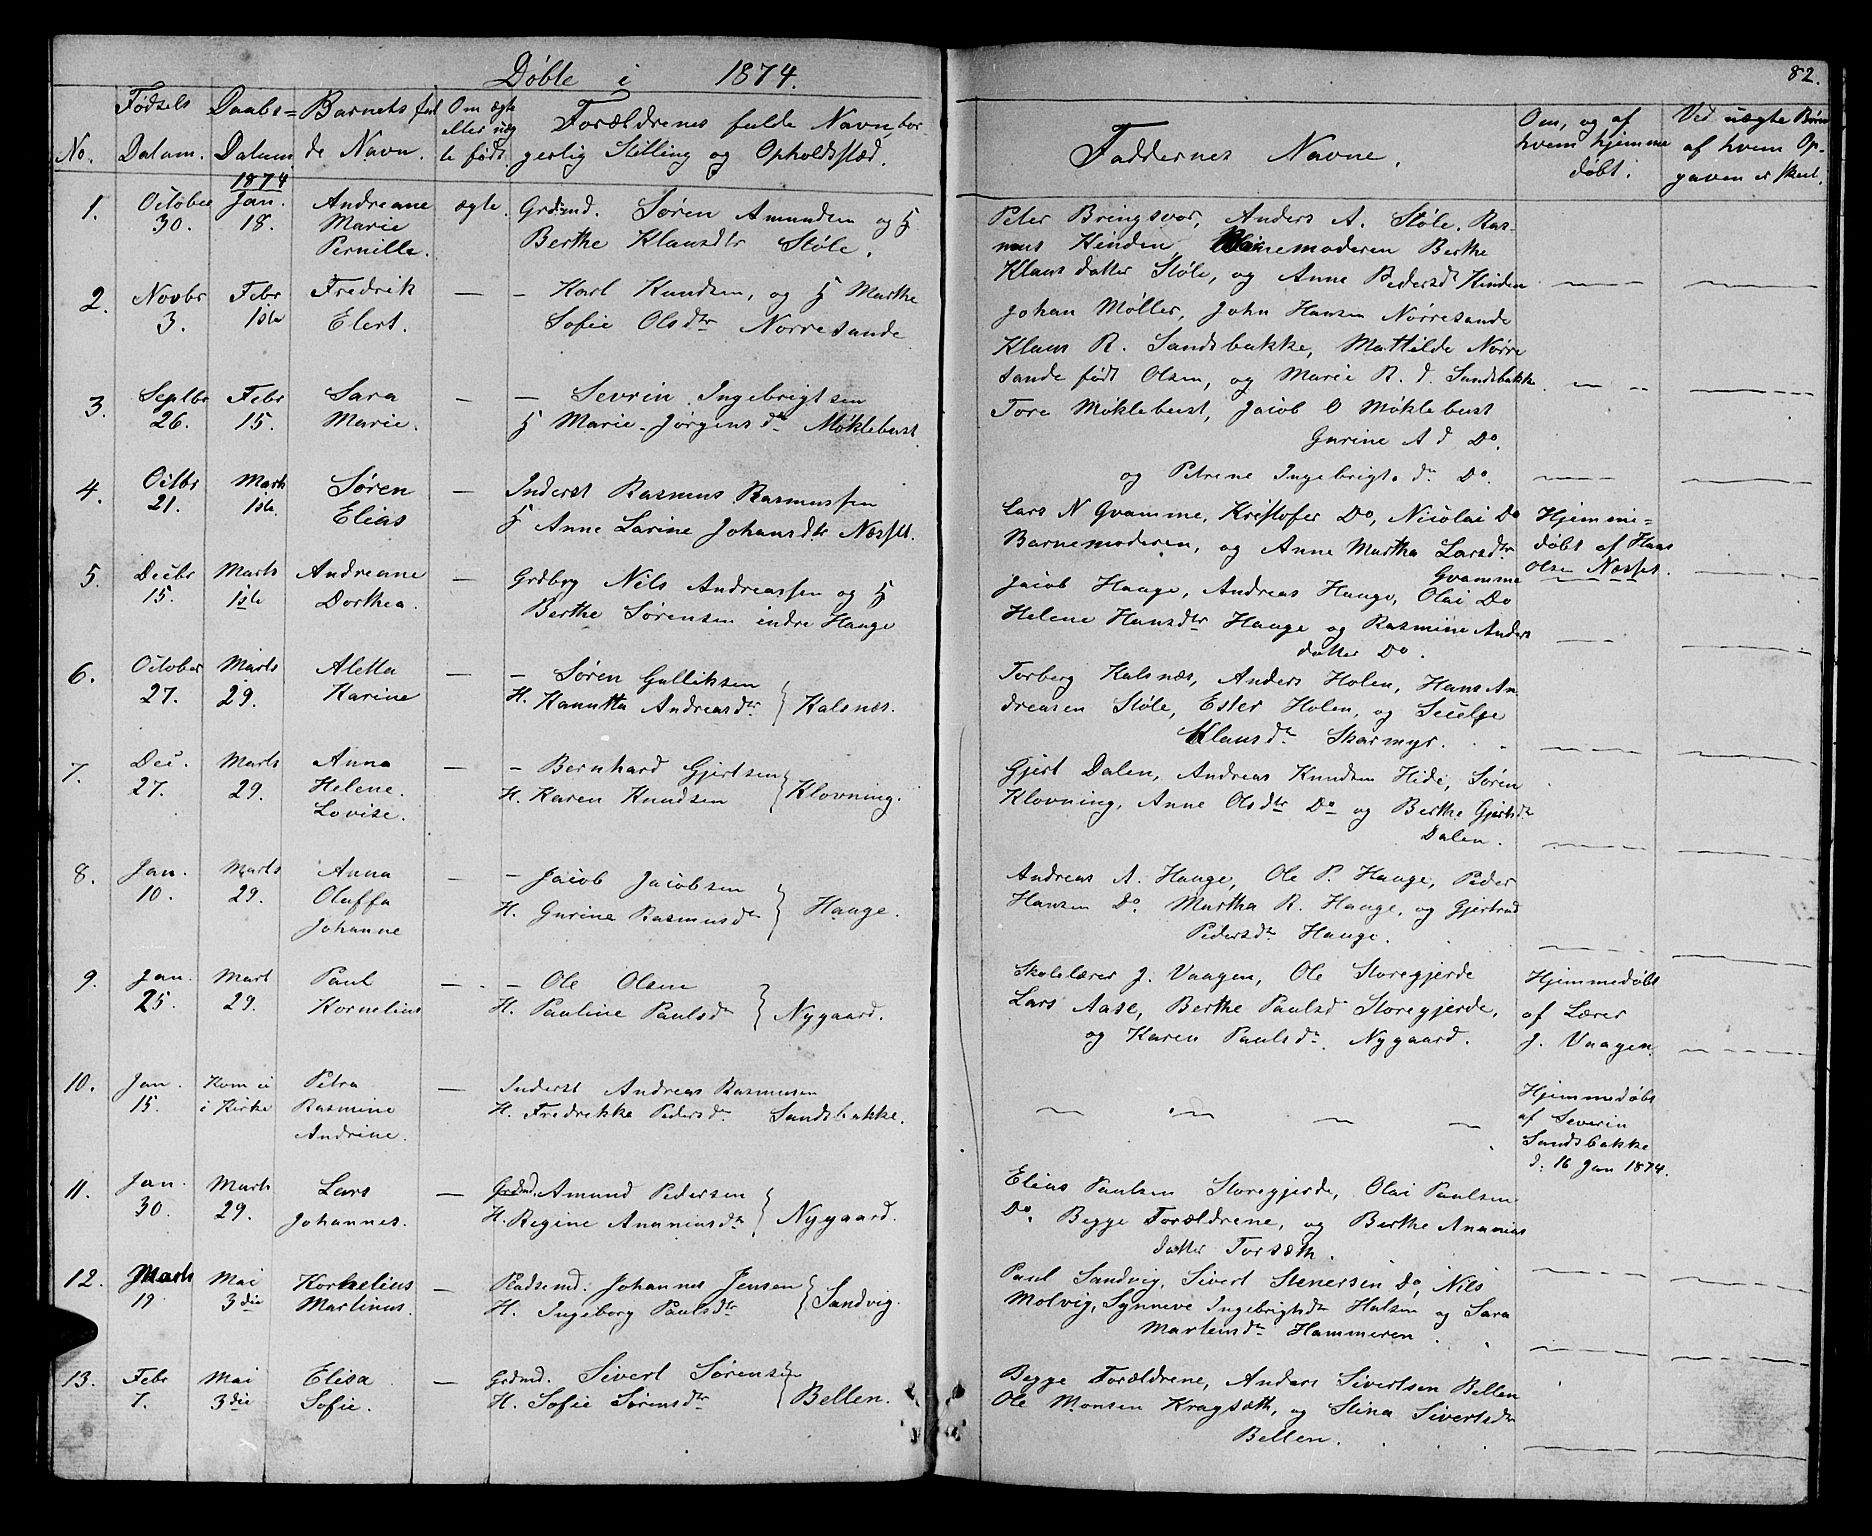 Døbte i 1874.
82.
No.
Fødsels Datum.
Daabs= Datum
Barnets fulde Navn.
Om ægte eller uægte født.
Forældrenes fulde Navn, borgerlig Stilling og Opholdssted.
Faddernes Navne.
Om, og af hvem hjemmedøbt.
Ved uægte Børn af hvem Opgaven er skeet.
1874
1. October 30. Jan. 18. Andreane Marie Pernille. ægte. Grdmd. Søren Amundsen og H
Berthe Klausdtr Støle.
Peter Bringsvor, Anders A. Støle. Ras-
mus Hinden, Barnemoderen Berthe
Klausdatter Støle, og Anne Pedersdr Hinden
2. Novbr 3. Febr 1ste Fredrik Elert. — — Karl Knudsen, og H Marthe
Sofie Olsdtr Nørresande
Johan Møller, John Hansen Nørresande
Klaus R. Sandsbakke, Mathilde Nørre
sande født Olsen, og Marie R. d. Sandsbakk
3. Septbr 26. Febr 15. Sara Marie. — — Sevrin Ingebrigtsen
H Marie Jørgensdr Møklebust.
Tore Møklebust, Jacob O Møklebust
Gurine A d Do.
og Petrine Ingebrigts dr Do.
4. Octbr 21. Marts 1ste. Søren Elias — Inderst Rasmus Rasmussen
H Anne Larine Johansdtr Næsset.
Lars N Gvamme, Kristofer Do, Nicolai Do
Barnemoderen, og Anne Martha Larsdtr
Gvamme
Hjemme=
døbt af Hans
Olsen Næsset.
5. Decbr 15. Marts 1ste Andreane Dorthea. — Grdbrg Nils Andreassen og H
Berthe Sørensen indre Hauge
Jacob Hauge, Andreas Hauge, Olai Do
Helene Hansdtr Hauge og Rasmine Anders
datter Do.
6. October 27. Marts 29. Aletta Karine — — Søren Gulliksen
H. Hanutta Andreasdtr } Kalsnæs.
Torberg Kalsnæs, Anders Holen, Hans An
dreasen Støle, Ester Holen, og
Klausdr Skarmyr.
7. Dec. 27. Marts 29. Anna Helene. Lovise. — — Bernhard Gjertsen
H. Karen Knudsen } Klovning.
Gjert Dalen, Andreas Knudsen Hide, Søren
Klovning, Anne Olsdtr Do og Berthe Gjertsdr
Dalen.
8. Jan. 10. Marts 29. Anna Oluffa Johanne — — Jacob Jacobsen
H. Gurine Rasmusdr } Hauge.
Andreas A. Hauge, Ole P. Hauge, Peder
Hansen Do. Martha R. Hauge, og Gjertrud
Pedersdr Hauge.
9. Jan. 25. Mart 29. Paul Kornelius — — Ole Olsen
H. Pauline Paulsdr } Nygaard.
Skolelærer J. Vaagen, Ole Storegjerde
Lars Aase, Berthe Paulsd Storegjerde,
og Karen Paulsdr. Nygaard.
Hjemmedøbt
af Lærer
J. Vaagen.
10. Jan. 15. Kom ei i Kirke Petra Rasmine Andrine. — Inderst Andreas Rasmusen
H. Fredrikke Pedersdr Sandsbakke.
Hjemmedøbt
af Severin
Sandsbakke
d. 16 Jan 1874.
11. Jan. 30. Marts 29. Lars Johannes. — Grdmd. Amund Pedersen
H. Regine Ananiasdr } Nygaard.
Elias Paulsen Storegjerde, Olai Paulsen
Do. Begge Forældrene, og Berthe Ananias
datter Torsæth.
12. Marts 19 Mai 3die Kornelius Martinus. — Pladsemd. Johannes Jensen
H. Ingeborg Paulsdtr } Sandvig.
Paul Sandvig, Sivert Stenersen Do, Nils
Molvig, Synneve Ingebrigtsdr Halsen og Sara
Martensdr Hammeren.
13. Febr 7. Mai 3die Elisa Sofie. — Grdmd. Sivert Sørensen
H. Sofie Sørensdtr } Bellen.
Begge Forældrene, Anders Sivertsen Bellen
Ole Monsen Kragsæth, og Stina Sivertsdr
Bellen.